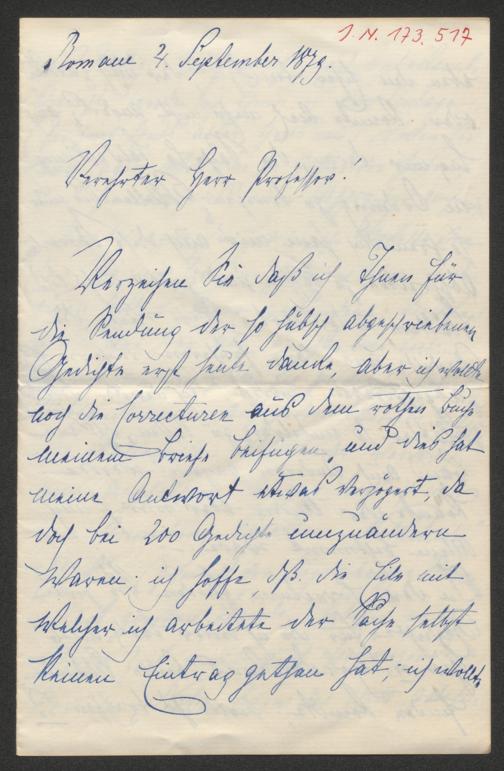 J. N. 173. 517
Romane 4. September 1879.
Verehrter Herr Professor!
Verzeihen Sie daß ich Ihnen für
die Sendung der so hübsch abgeschriebenen
Gedichte erst heute danke, aber ich wollte
noch die Correcturen aus dem rothen Buche
meinem Briefe beifügen, und dies hat
meine Antwort etwas verzögert, da
doch bei 200 Gedichte umzuändern
waren; ich hoffe, daß die Eile mit
welcher ich arbeitete der Sache selbst
keinen Eintrag gethan hat; ich wollte